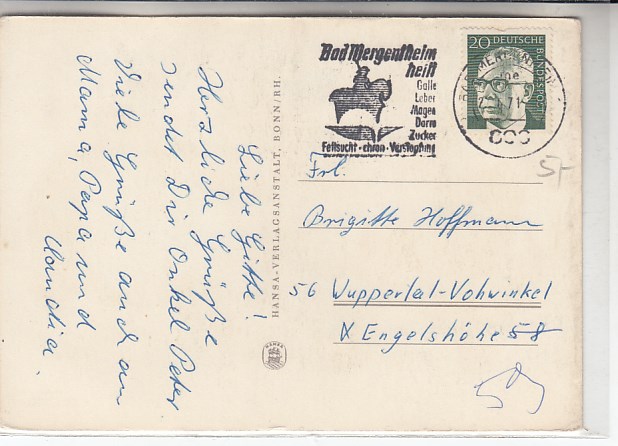 Liebe Gitte!
Herzliche Grüße
sendet Dir Onkel Peter.
Viele Grüße auch an
Mama, Papa und
Claudia.
HANSA-VERLAGSANSTALT, BONN/RH.
HANSA
Bad Mergentheim
heilt
Galle
Leber
Magen
Darm
Zucker
Fettsucht · chron · Verstopfung
20 DEUTSCHE
BUNDESPOST
71
Frl.
Brigitte Hoffmann
56 Wuppertal-Vohwinkel
Engelshöhe 58
5,-